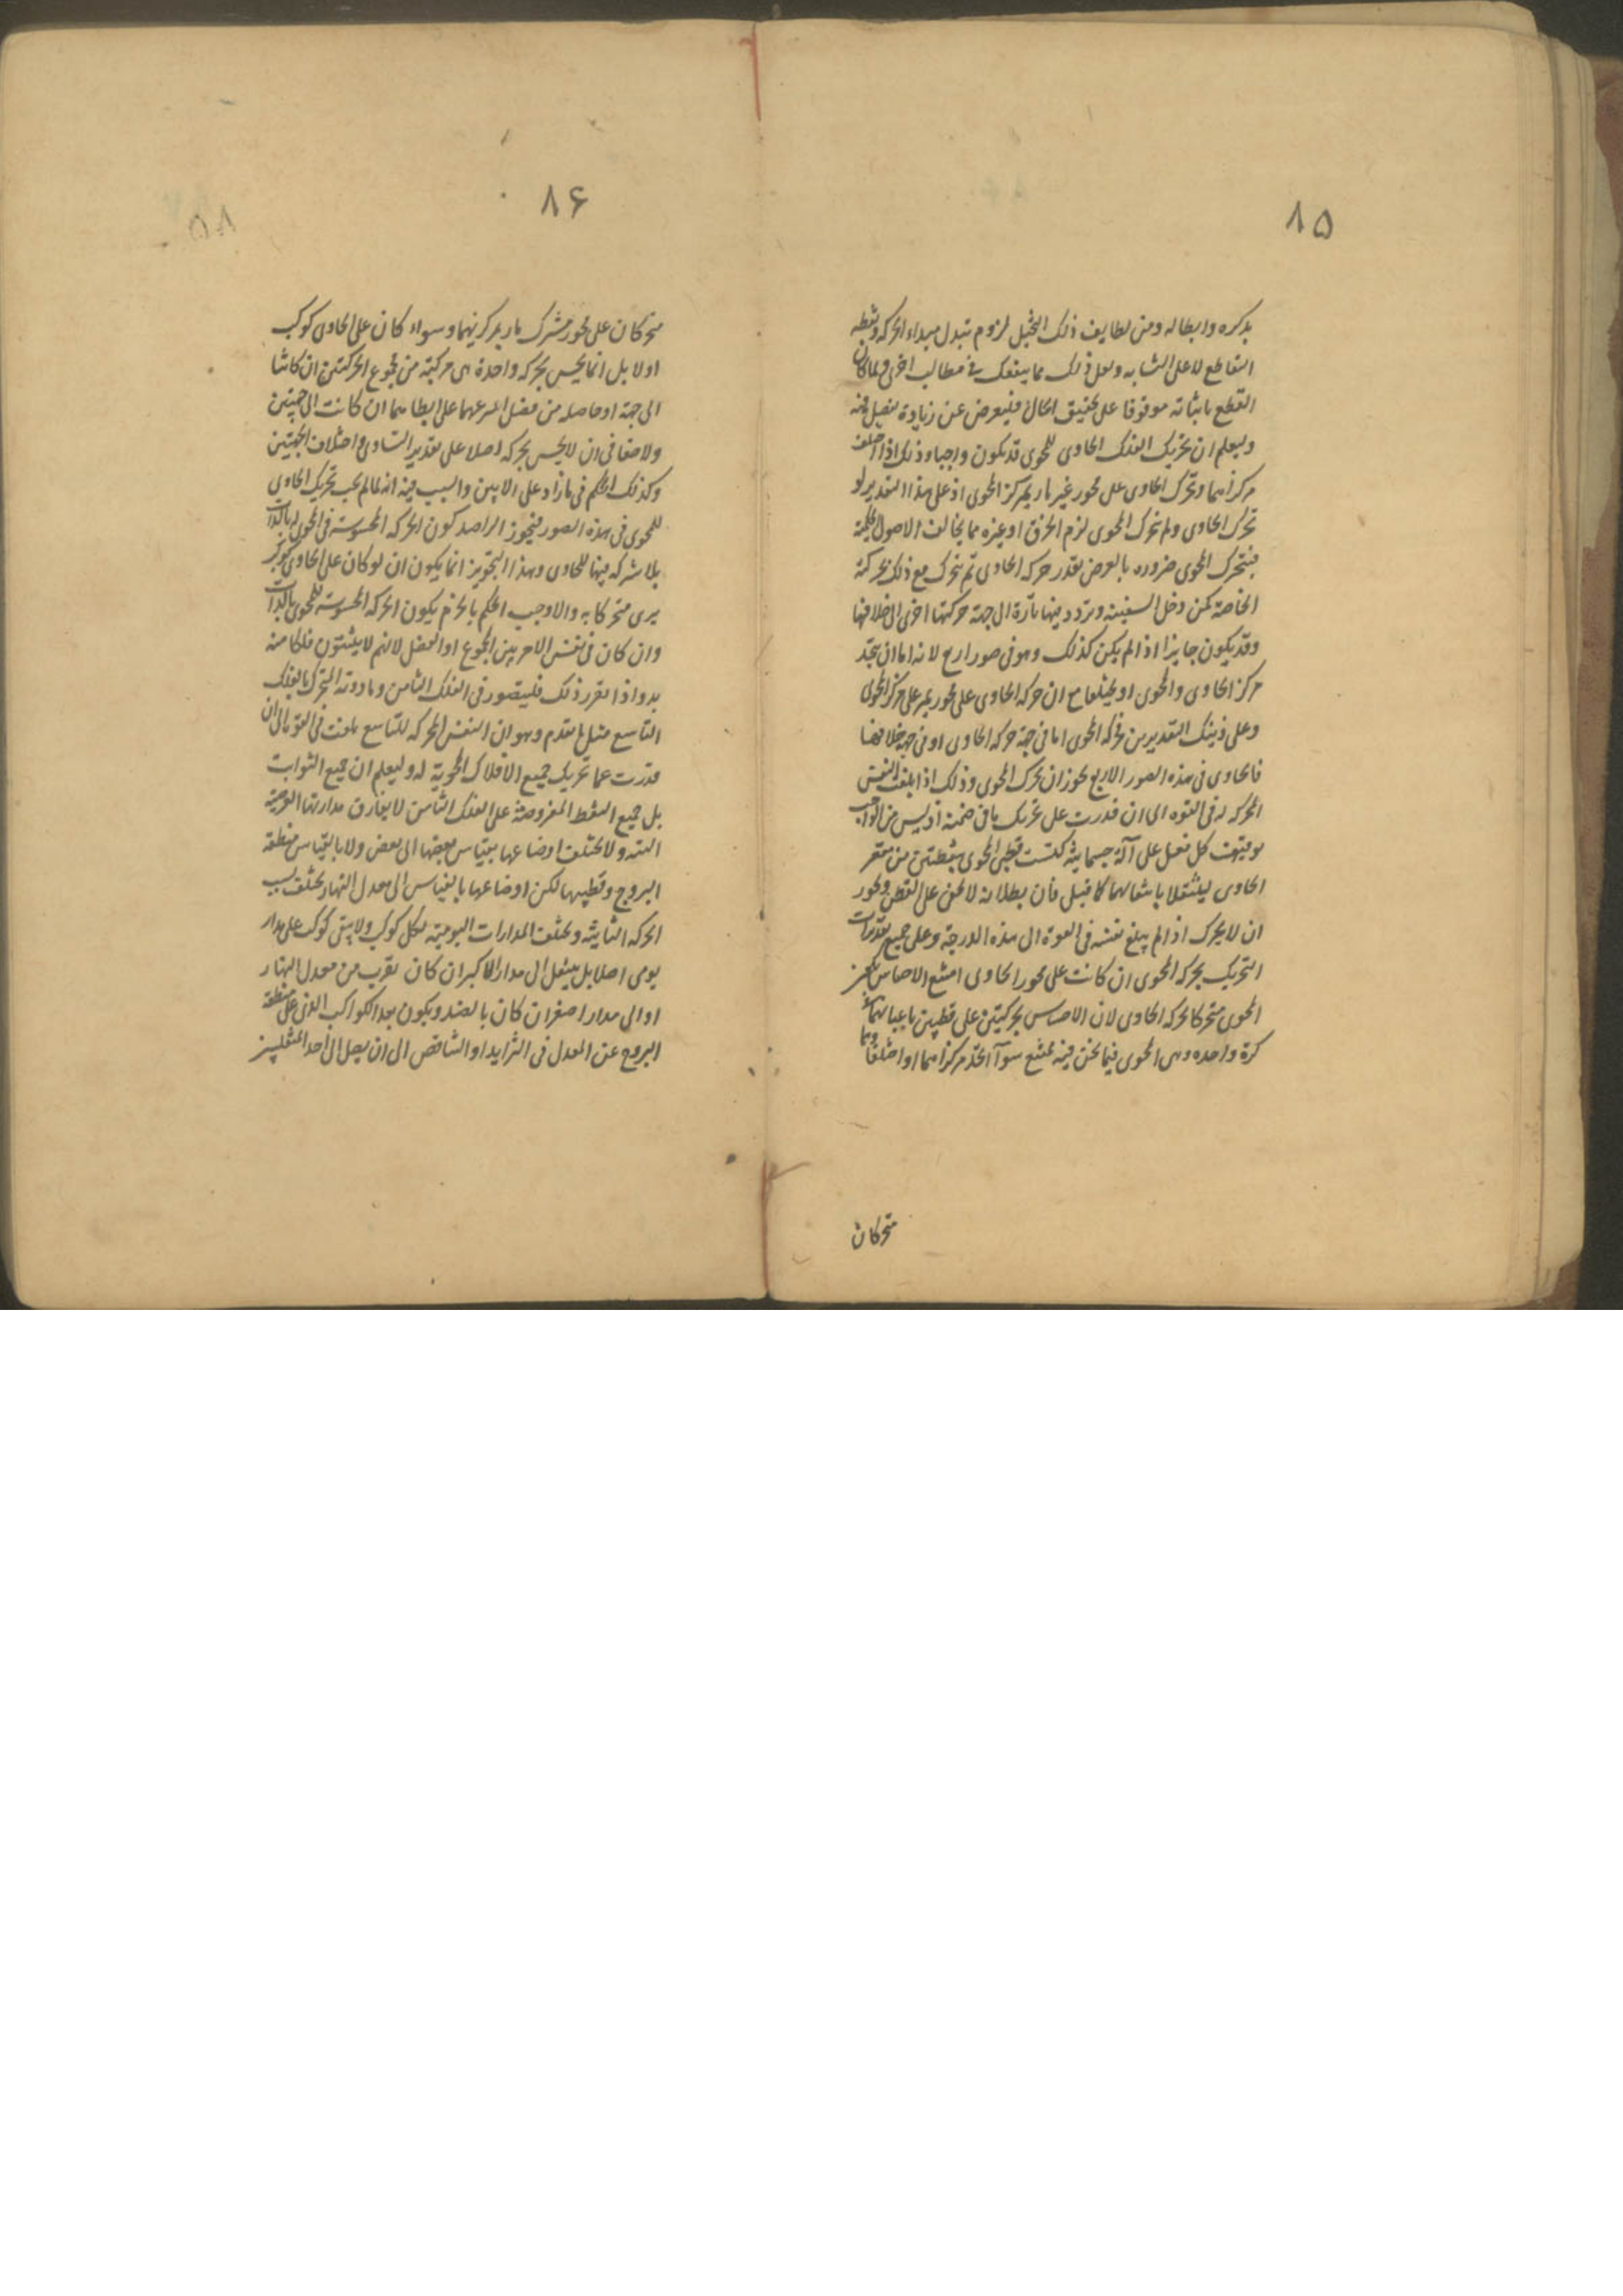 ٨۵
بذكره وابطاله ومن لطايف ذلك التخيل لزوم تبدل مبداء الحركة ونقطة
التقاطع لا على التشابه ولعل ذلك مما ينفعك فى مطالب اخرى ولما كان
القطع باثباته موقوفا على تحقيق الحال فليعرض عن زيادة تفصيل فيه
وليعلم ان تحريك الفلك الحاوى للمحوى قد يكون واجبا وذلك اذا اختلف
مركزاهما وتحرك الحاوى على محور غير مار بمركز المحوى اذ على هذا التقدير لو
تحرك الحاوى ولم يتحرك المحوى لزم الخرق او غيره مما يخالف الاصول الحكمية
فيتحرك المحوى ضرورة بالعرض بقدر حركة الحاوى ثم يتحرك مع ذلك بحركته
الخاصة كمن دخل السفينة وتردد فيها تارة الى جهة حركتها واخرى الى خلافها
وقد يكون جايزا اذا لم يكن كذلك وهو فى صور اربع لانه اما ان يتحد
مركز الحاوى والمحوى او يختلفا مع ان حركة الحاوى على محور يمر على مركز المحوى
وعلى ذينك التقديرين فحركة المحوى اما فى جهة حركة الحاوى او فى جهة خلافها
فالحاوى فى هذه الصور الاربع يجوز ان يحرك المحوى وذلك اذا بلغت النفس
المحركة له فى القوة الى ان قدرت على تحريك ما فى ضمنه اذ ليس من الواجب
توقف كل فعل على آلة جسمانية كتشبث قطبى المحوى بنقطتين من مقعر
الحاوى لينتقلا بانتقالهما كما قيل فان بطلانه لا يخفى على الفطن ويجوز
ان لا يحرك اذا لم يبلغ نفسه فى القوة الى هذه الدرجة وعلى جميع تقديرات
التحريك بحركة المحوى ان كانت على محور الحاوى امتنع الاحساس
المحوى متحركا بحركة الحاوى لان الاحساس بحركتين على قطبين باعيانهما
كرة واحدة وهى المحوى فيما نحن فيه ممتنع سوآ اتحد مركزاهما او اختلفا وهما
متحركان
٨۶
متحركان على محور مشترك مار بمركزيهما وسواء كان على الحاوى كوكب
او لا بل انما يحس بحركة واحدة اى مركبة من مجموع الحركتين ان كانتا
الى جهة او حاصلة من فضل اسرعهما على ابطاهما ان كانت الى جهتين
ولا خفا فى ان لا يحس بحركة اصلا على تقدير التساوى واختلاف الجهتين
وكذلك الحكم فى ما زاد على الاثنين والسبب فيه انه لما لم يجب تحريك الحاوى
للمحوى فى هذه الصور فيجوز الراصد كون الحركة المحسوسة فى المحوى له بالذات
بلا شركة فيها للحاوى وهذا التجويز انما يكون ان لو كان على الحاوى كوكب
يرى متحركا به والا وجب الحكم بالجزم بكون الحركة المحسوسة للمحوى بالذات
وان كان فى نفس الامر بين المجموع او الفضل لانهم لا يثبتون فلكا منه
بد واذا تقرر ذلك فليتصور فى الفلك الثامن وما دونه المتحرك بالفلك
التاسع مثل ما تقدم وهو ان النفس المحركة للتاسع بلغت فى القوة الى ان
قدرت على تحريك جميع الافلاك المحوية له وليعلم ان جميع الثوابت
بل جميع النقط المفروضة على الفلك الثامن لا يفارق مداراتها العرضية
البته ولا يختلف اوضاعها بقياس بعضها الى بعض ولا بالقياس منطقة
البروج وقطبيها لكن اوضاعها بالقياس الى معدل النهار يختلف بسبب
الحركة الثانية ويختلف المدارات اليومية لكل كوكب ولا يبقى كوكب على مدار
يومى اصلا بل ينتقل الى مدار اكبر ان كان يقرب من معدل النهار
او الى مدار اصغر ان كان بالضد ويكون بعد الكواكب التى على منطقة
البروج عن المعدل فى التزايد او التناقص الى ان يصل الى احد المنقلبين